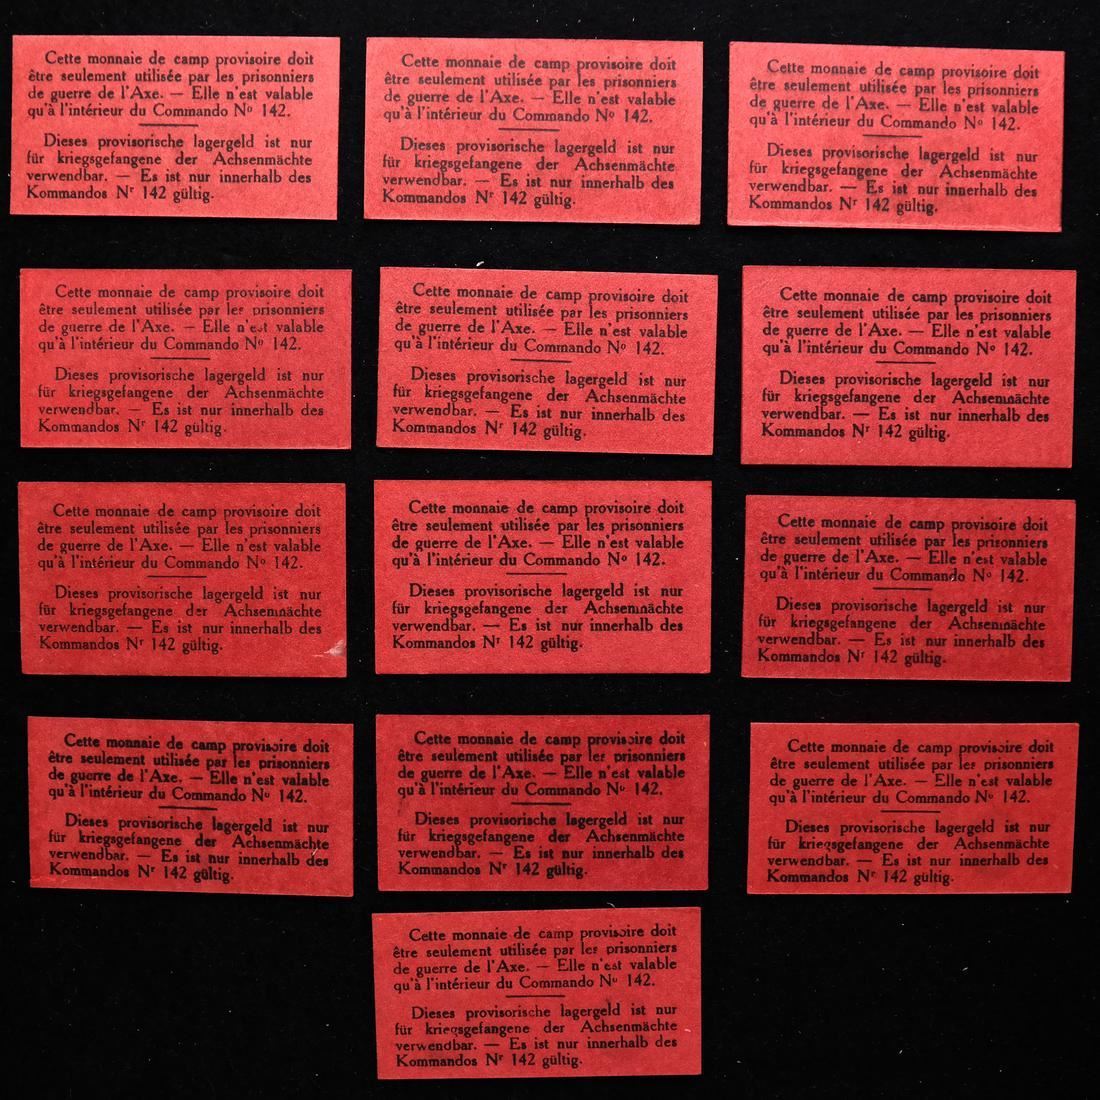 Cette monnaie de camp provisoire doit
être seulement utilisée par les prisonniers
de guerre de l'Axe. — Elle n'est valable
qu'à l'intérieur du Commando Nº 142.
Dieses provisorische lagergeld ist nur
für kriegsgefangene der Achsenmächte
verwendbar. — Es ist nur innerhalb des
Kommandos Nʳ 142 gültig.
Cette monnaie de camp provisoire doit
être seulement utilisée par les prisonniers
de guerre de l'Axe. — Elle n'est valable
qu'à l'intérieur du Commando Nº 142.
Dieses provisorische lagergeld ist nur
für kriegsgefangene der Achsenmächte
verwendbar. — Es ist nur innerhalb des
Kommandos Nʳ 142 gültig.
Cette monnaie de camp provisoire doit
être seulement utilisée par les prisonniers
de guerre de l'Axe. — Elle n'est valable
qu'à l'intérieur du Commando Nº 142.
Dieses provisorische lagergeld ist nur
für kriegsgefangene der Achsenmächte
verwendbar. — Es ist nur innerhalb des
Kommandos Nʳ 142 gültig.
Cette monnaie de camp provisoire doit
être seulement utilisée par les prisonniers
de guerre de l'Axe. — Elle n'est valable
qu'à l'intérieur du Commando Nº 142.
Dieses provisorische lagergeld ist nur
für kriegsgefangene der Achsenmächte
verwendbar. — Es ist nur innerhalb des
Kommandos Nʳ 142 gültig.
Cette monnaie de camp provisoire doit
être seulement utilisée par les prisonniers
de guerre de l'Axe. — Elle n'est valable
qu'à l'intérieur du Commando Nº 142.
Dieses provisorische lagergeld ist nur
für kriegsgefangene der Achsenmächte
verwendbar. — Es ist nur innerhalb des
Kommandos Nʳ 142 gültig.
Cette monnaie de camp provisoire doit
être seulement utilisée par les prisonniers
de guerre de l'Axe. — Elle n'est valable
qu'à l'intérieur du Commando Nº 142.
Dieses provisorische lagergeld ist nur
für kriegsgefangene der Achsenmächte
verwendbar. — Es ist nur innerhalb des
Kommandos Nʳ 142 gültig.
Cette monnaie de camp provisoire doit
être seulement utilisée par les prisonniers
de guerre de l'Axe. — Elle n'est valable
qu'à l'intérieur du Commando Nº 142.
Dieses provisorische lagergeld ist nur
für kriegsgefangene der Achsenmächte
verwendbar. — Es ist nur innerhalb des
Kommandos Nʳ 142 gültig.
Cette monnaie de camp provisoire doit
être seulement utilisée par les prisonniers
de guerre de l'Axe. — Elle n'est valable
qu'à l'intérieur du Commando Nº 142.
Dieses provisorische lagergeld ist nur
für kriegsgefangene der Achsenmächte
verwendbar. — Es ist nur innerhalb des
Kommandos Nʳ 142 gültig.
Cette monnaie de camp provisoire doit
être seulement utilisée par les prisonniers
de guerre de l'Axe. — Elle n'est valable
qu'à l'intérieur du Commando Nº 142.
Dieses provisorische lagergeld ist nur
für kriegsgefangene der Achsenmächte
verwendbar. — Es ist nur innerhalb des
Kommandos Nʳ 142 gültig.
Cette monnaie de camp provisoire doit
être seulement utilisée par les prisonniers
de guerre de l'Axe. — Elle n'est valable
qu'à l'intérieur du Commando Nº 142.
Dieses provisorische lagergeld ist nur
für kriegsgefangene der Achsenmächte
verwendbar. — Es ist nur innerhalb des
Kommandos Nʳ 142 gültig.
Cette monnaie de camp provisoire doit
être seulement utilisée par les prisonniers
de guerre de l'Axe. — Elle n'est valable
qu'à l'intérieur du Commando Nº 142.
Dieses provisorische lagergeld ist nur
für kriegsgefangene der Achsenmächte
verwendbar. — Es ist nur innerhalb des
Kommandos Nʳ 142 gültig.
Cette monnaie de camp provisoire doit
être seulement utilisée par les prisonniers
de guerre de l'Axe. — Elle n'est valable
qu'à l'intérieur du Commando Nº 142.
Dieses provisorische lagergeld ist nur
für kriegsgefangene der Achsenmächte
verwendbar. — Es ist nur innerhalb des
Kommandos Nʳ 142 gültig.
Cette monnaie de camp provisoire doit
être seulement utilisée par les prisonniers
de guerre de l'Axe. — Elle n'est valable
qu'à l'intérieur du Commando Nº 142.
Dieses provisorische lagergeld ist nur
für kriegsgefangene der Achsenmächte
verwendbar. — Es ist nur innerhalb des
Kommandos Nʳ 142 gültig.